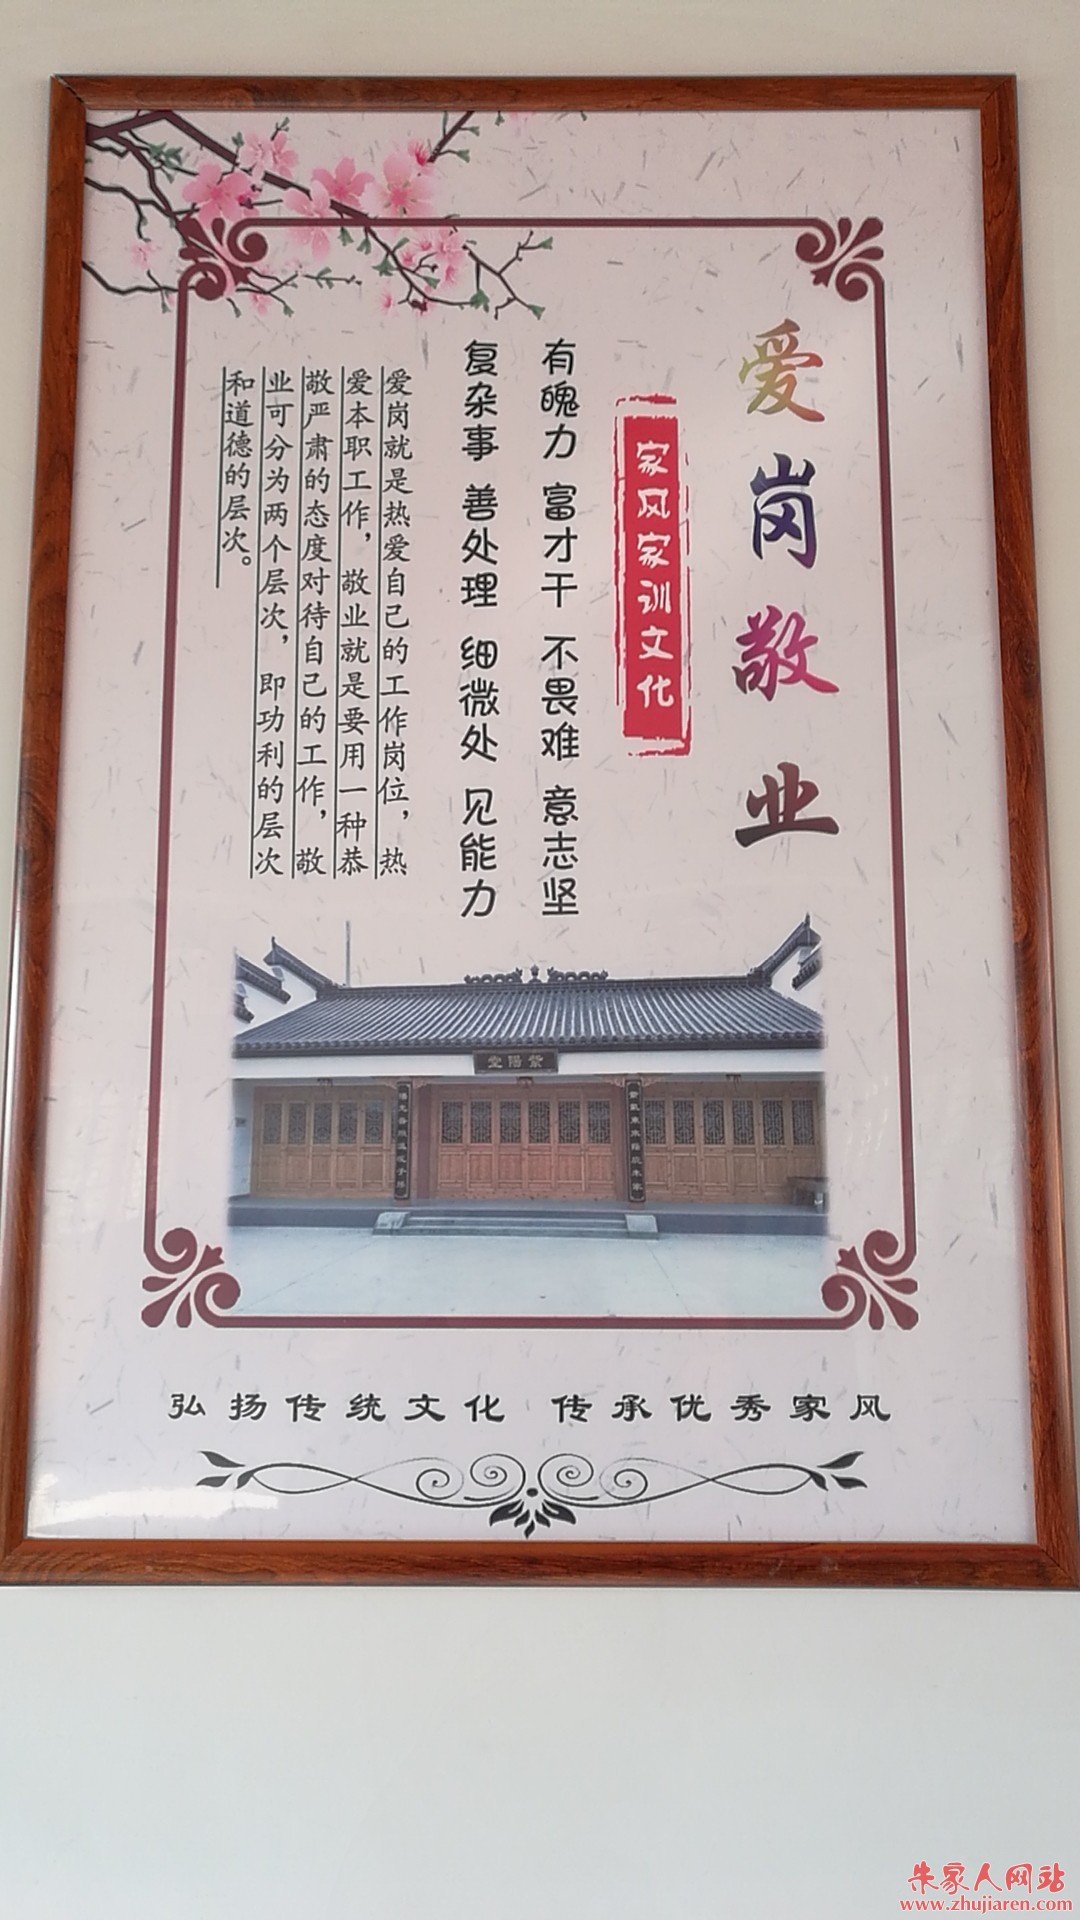 爱岗敬业
家风家训文化
有魄力 富才干 不畏难 意志坚
复杂事 善处理 细微处 见能力
爱岗就是热爱自己的工作岗位，热
爱本职工作，敬业就是要用一种恭
敬严肃的态度对待自己的工作，敬
业可分为两个层次，即功利的层次
和道德的层次。
紫陽堂
弘扬传统文化 传承优秀家风
朱家人网站
www.zhujiaren.com